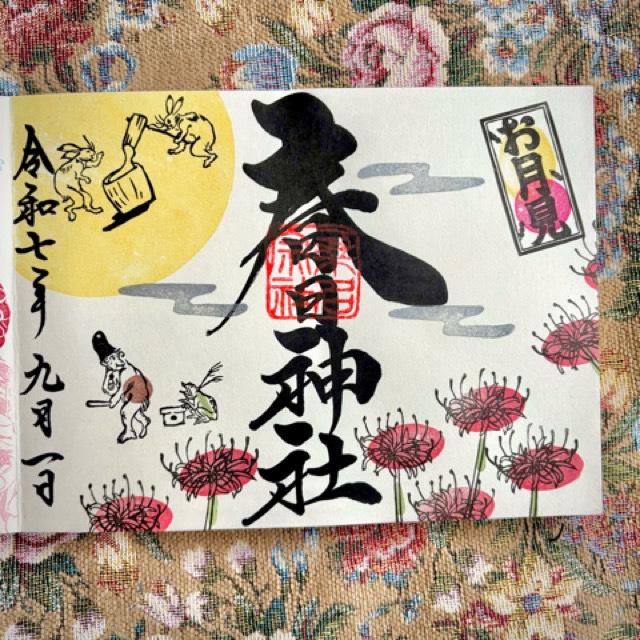 お月見
春日神社
令和七年九月一日